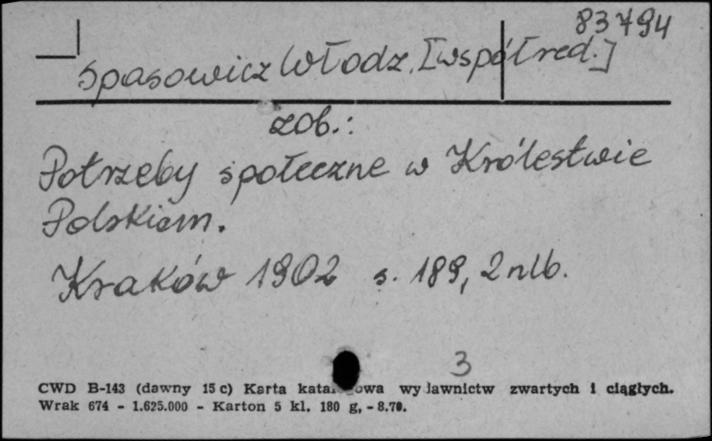 83794
Spasowicz Włodz. [współred.]
zob.:
Potrzeby społeczne w Królestwie
Polskiem.
Kraków 1902 s. 189, 2 nlb.
3
CWD B-143 (dawny 15 c) Karta wydawnictw zwartych i ciągłych.
Wrak 674 - 1.625.000 - Karton 5 kl. 180 g, - 8.70.